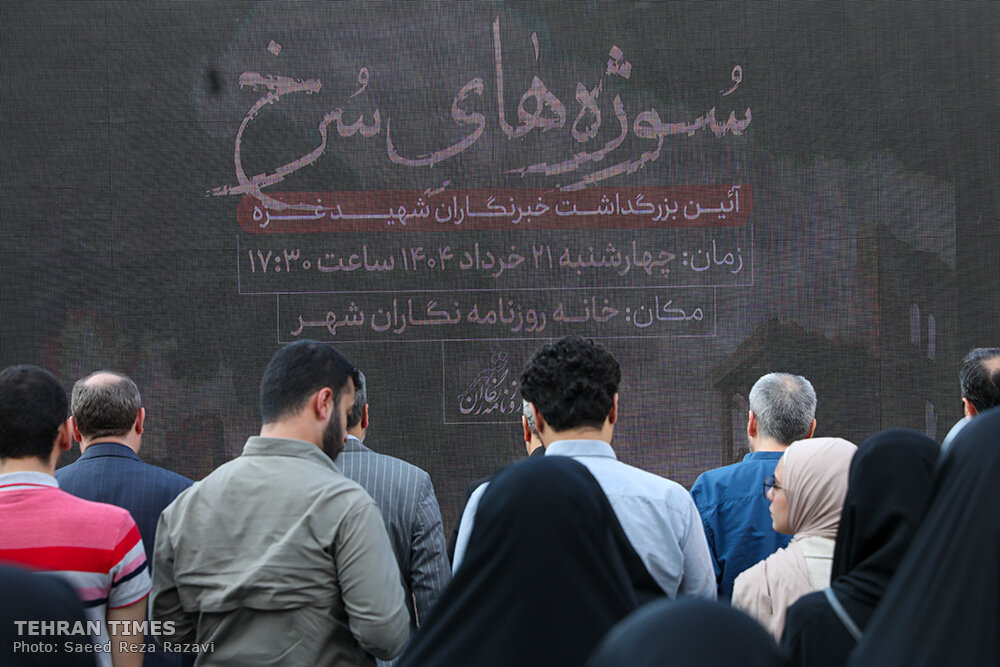 سُوژه‌هایِ سُرخ
آئین بزرگداشت خبرنگاران شهید غزه
زمان: چهارشنبه ۲۱ خرداد ۱۴۰۴ ساعت ۱۷:۳۰
مکان: خانه روزنامه نگاران شهر
خانه
روزنامه‌نگاران
شهر
TEHRAN TIMES
Photo: Saeed Reza Razavi